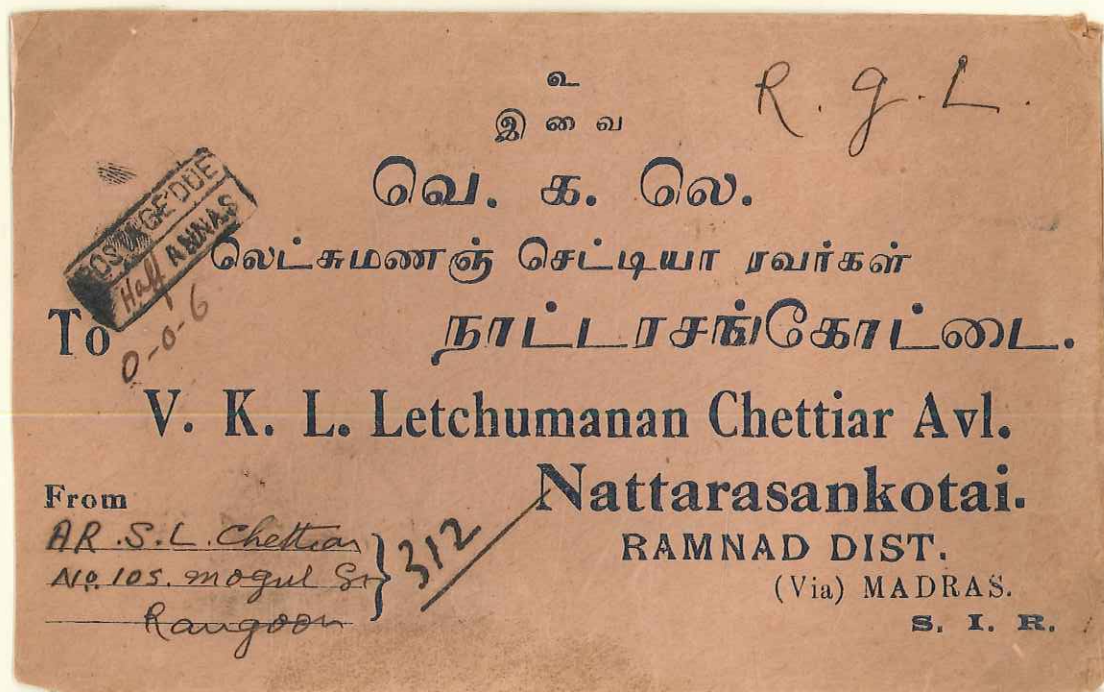 உ
R. g. L.
இவை
வெ. க. லெ.
POSTAGE DUE
Half ANNAS
0-0-6
லெட்சுமணஞ் செட்டியா ரவர்கள்
To
நாட்டரசங்கோட்டை.
V. K. L. Letchumanan Chettiar Avl.
Nattarasankotai.
RAMNAD DIST.
(Via) MADRAS.
S. I. R.
From
AR. S. L. Chettiar
No. 105. mogul St
Rangoon
312